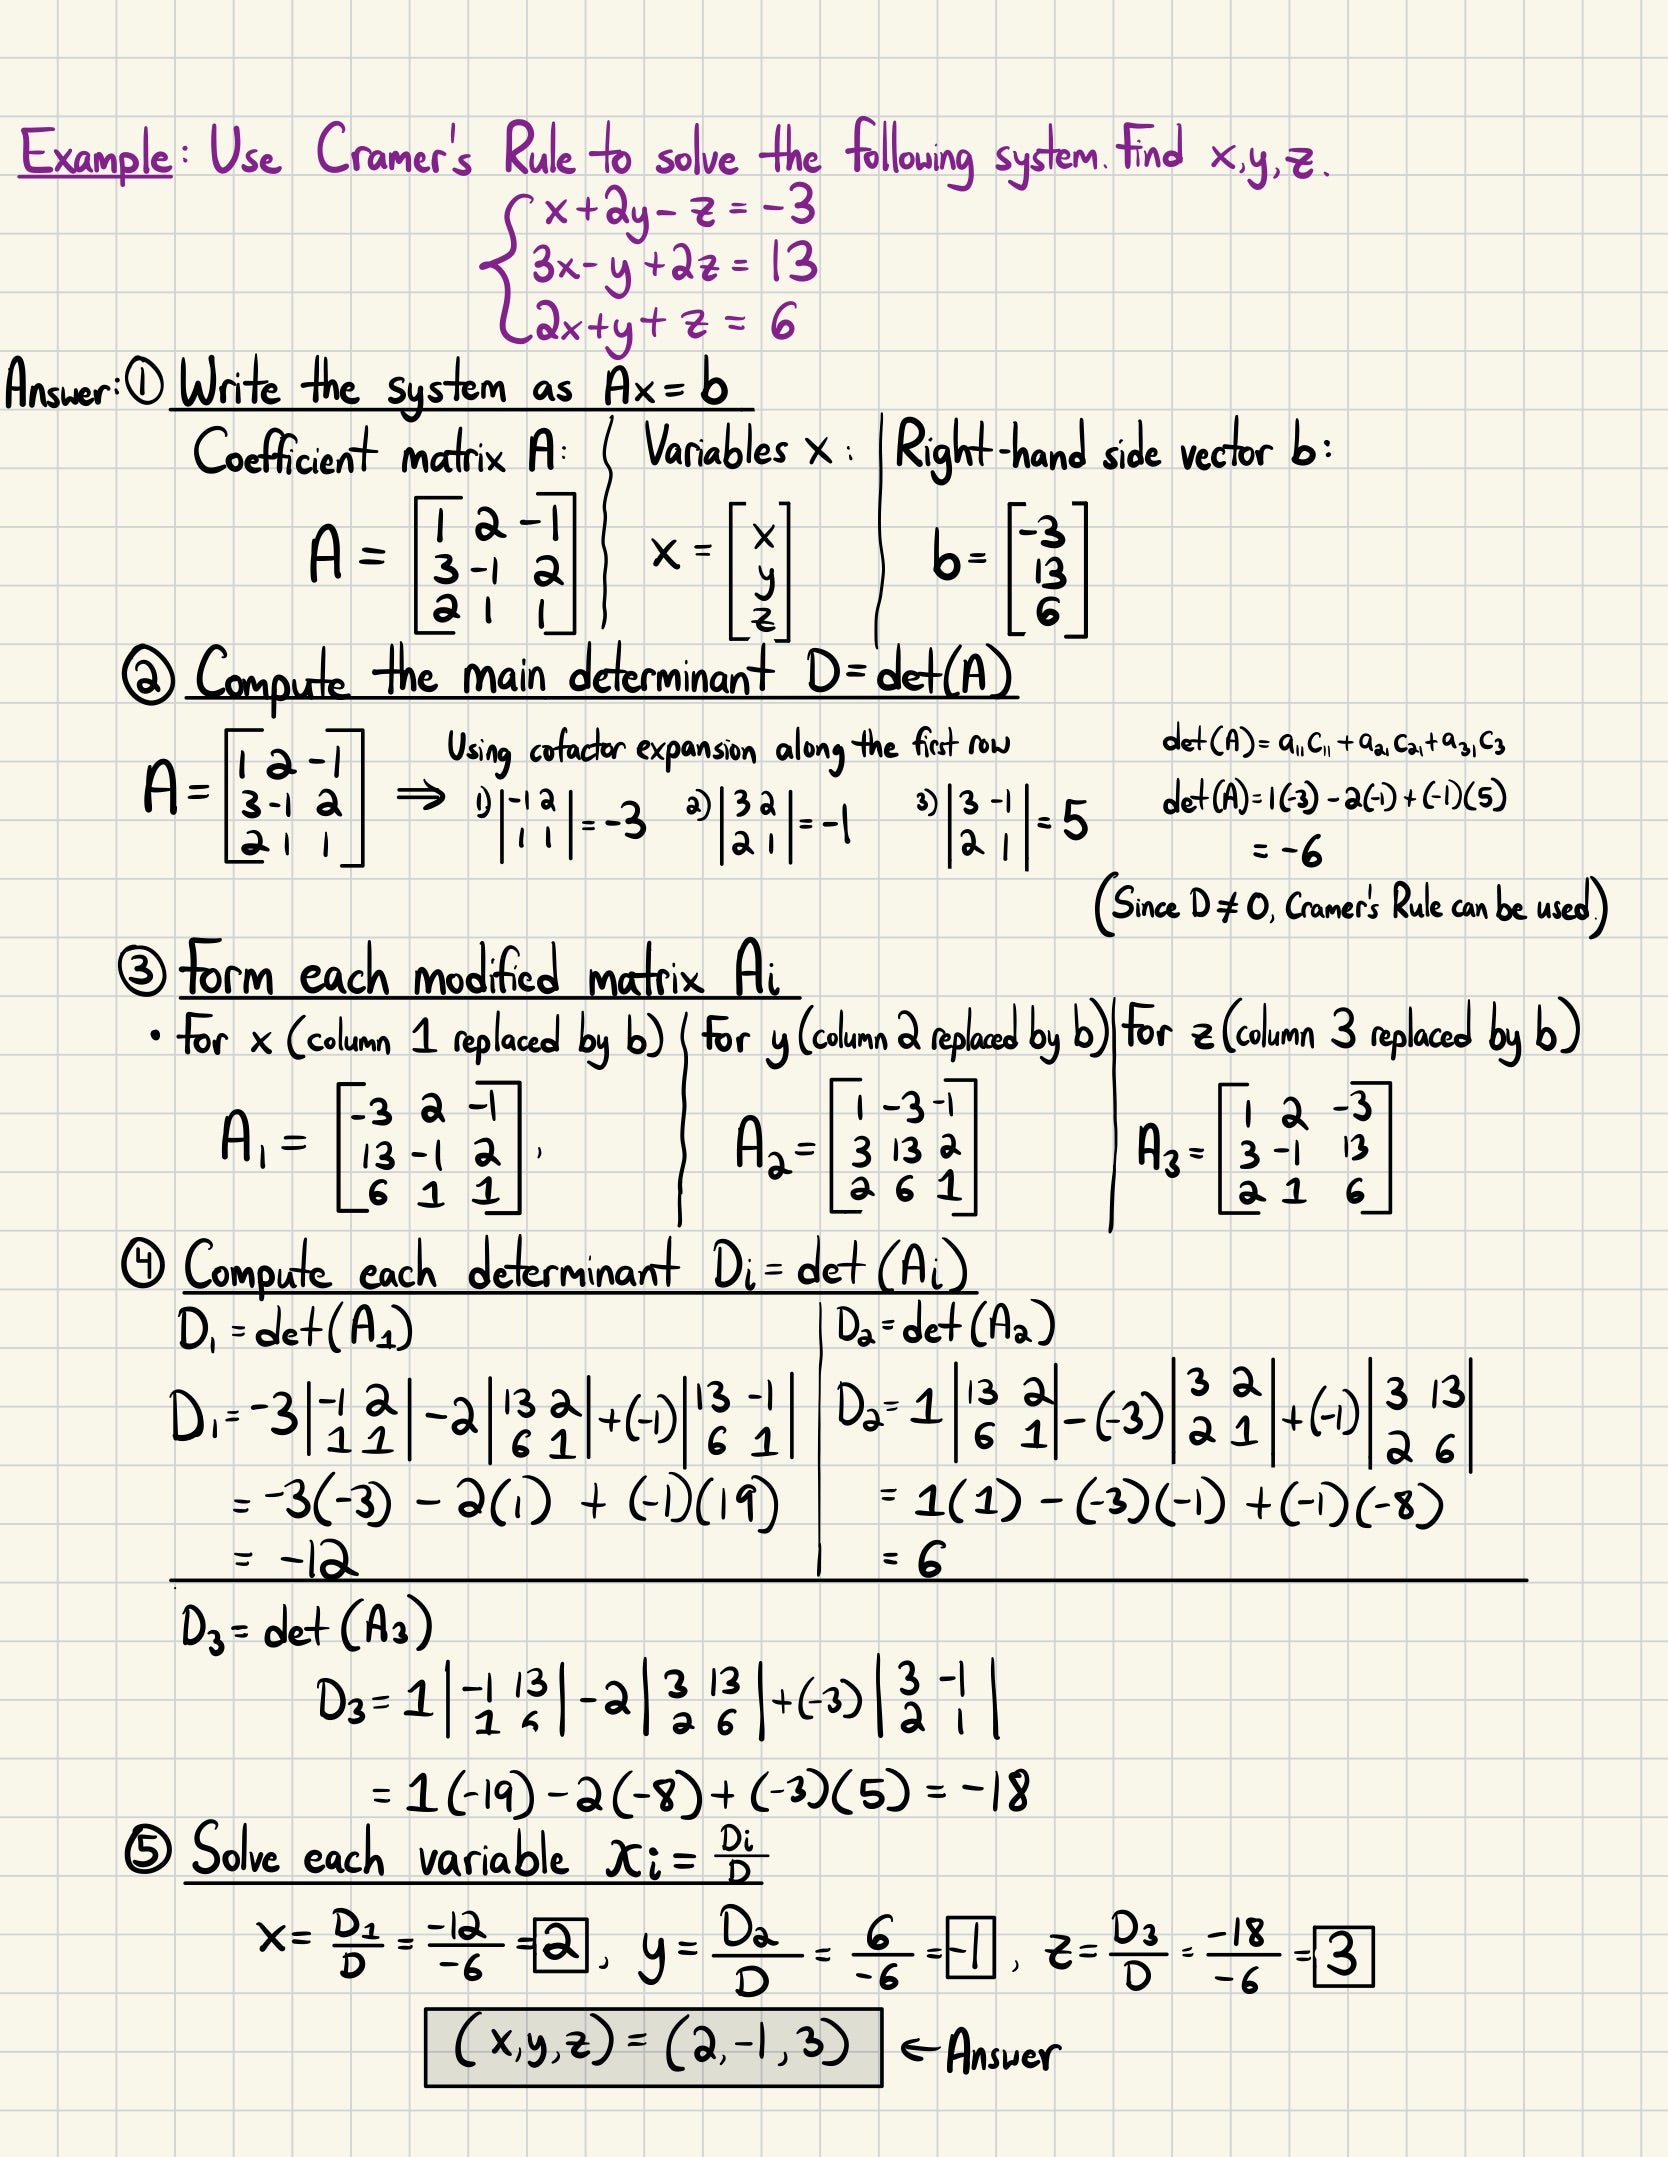 Example: Use Cramer's Rule to solve the following system. Find x,y,z.
x+2y-z = -3
3x-y+2z = 13
2x+y+z = 6
Answer: ① Write the system as Ax=b
Coefficient matrix A: Variables x: Right-hand side vector b:
A = [1 2 -1
3 -1 2
2 1 1]
x = [x
y
z]
b = [-3
13
6]
② Compute the main determinant D=det(A)
A = [1 2 -1
3 -1 2
2 1 1] ⇒
Using cofactor expansion along the first row
1) |-1 2
1 1| = -3
2) |3 2
2 1| = -1
3) |3 -1
2 1| = 5
det(A) = a₁₁c₁₁ + a₂₁c₂₁ + a₃₁c₃
det(A) = 1(-3) - 2(-1) + (-1)(5)
= -6
(Since D ≠ 0, Cramer's Rule can be used.)
③ Form each modified matrix Ai
• For x (column 1 replaced by b) For y (column 2 replaced by b) For z (column 3 replaced by b)
A₁ = [-3 2 -1
13 -1 2
6 1 1],
A₂ = [1 -3 -1
3 13 2
2 6 1]
A₃ = [1 2 -3
3 -1 13
2 1 6]
④ Compute each determinant Di = det(Ai)
D₁ = det(A₁)
D₁ = -3 |-1 2
1 1| -2 |13 2
6 1| +(-1) |13 -1
6 1|
= -3(-3) - 2(1) + (-1)(19)
= -12
D₂ = det(A₂)
D₂ = 1 |13 2
6 1| -(-3) |3 2
2 1| +(-1) |3 13
2 6|
= 1(1) - (-3)(-1) + (-1)(-8)
= 6
D₃ = det(A₃)
D₃ = 1 |-1 13
1 6| -2 |3 13
2 6| +(-3) |3 -1
2 1|
= 1(-19) - 2(-8) + (-3)(5) = -18
⑤ Solve each variable xi = Di/D
x = D₁/D = -12/-6 = 2, y = D₂/D = 6/-6 = -1, z = D₃/D = -18/-6 = 3
(x,y,z) = (2,-1,3) ← Answer